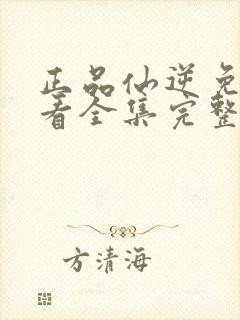 正品仙逆免
看全集完整
方清海